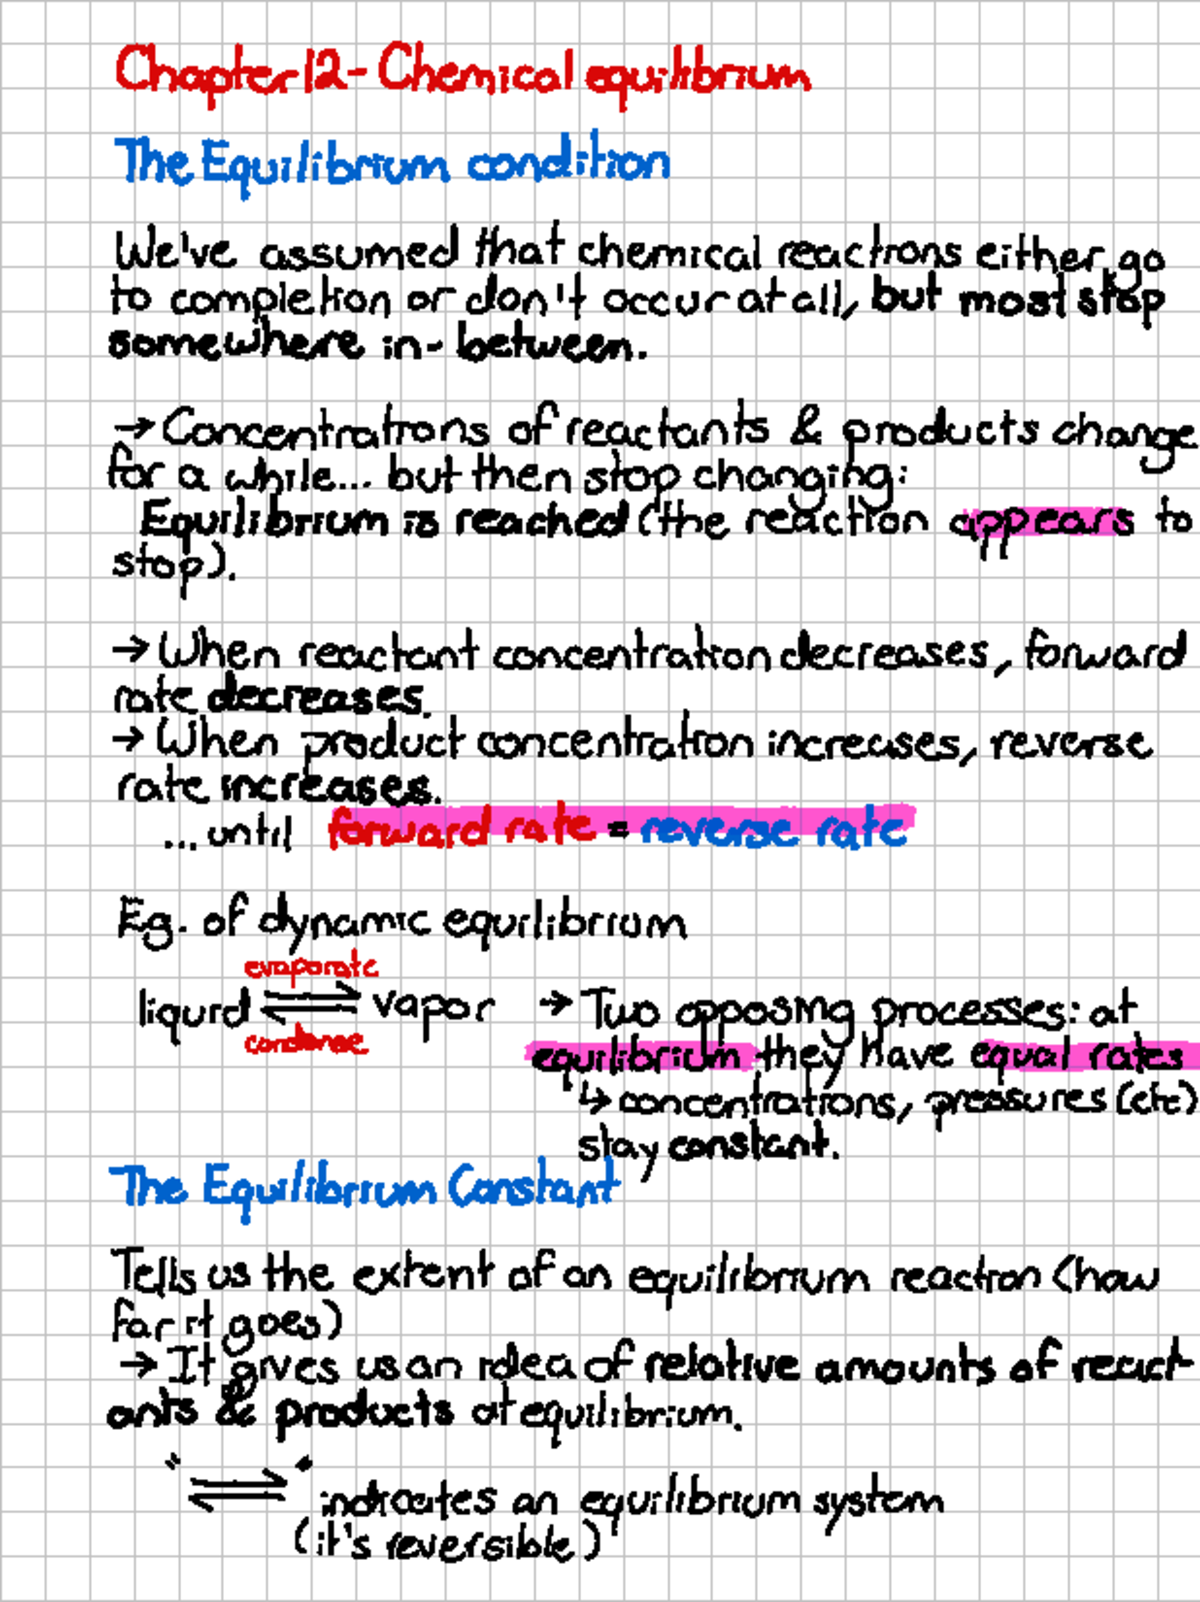 Chapter 12 - Chemical equilibrium
The Equilibrium condition
We've assumed that chemical reactions either go
to completion or don't occur at all, but most stop
somewhere in-between.
→ Concentrations of reactants & products change
for a while... but then stop changing:
Equilibrium is reached (the reaction appears to
stop).
→ When reactant concentration decreases, forward
rate decreases.
→ When product concentration increases, reverse
rate increases.
... until forward rate = reverse rate
Eg. of dynamic equilibrium
evaporate
liquid ⇌ vapor → Two opposing processes: at
condense
equilibrium they have equal rates
↳ concentrations, pressures (etc)
stay constant.
The Equilibrium Constant
Tells us the extent of an equilibrium reaction (how
far it goes)
→ It gives us an idea of relative amounts of react-
ants & products at equilibrium.
"⇌" indicates an equilibrium system
(it's reversible)